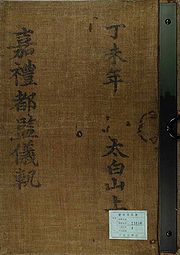 丁未年
太白山上
嘉禮都監儀軌